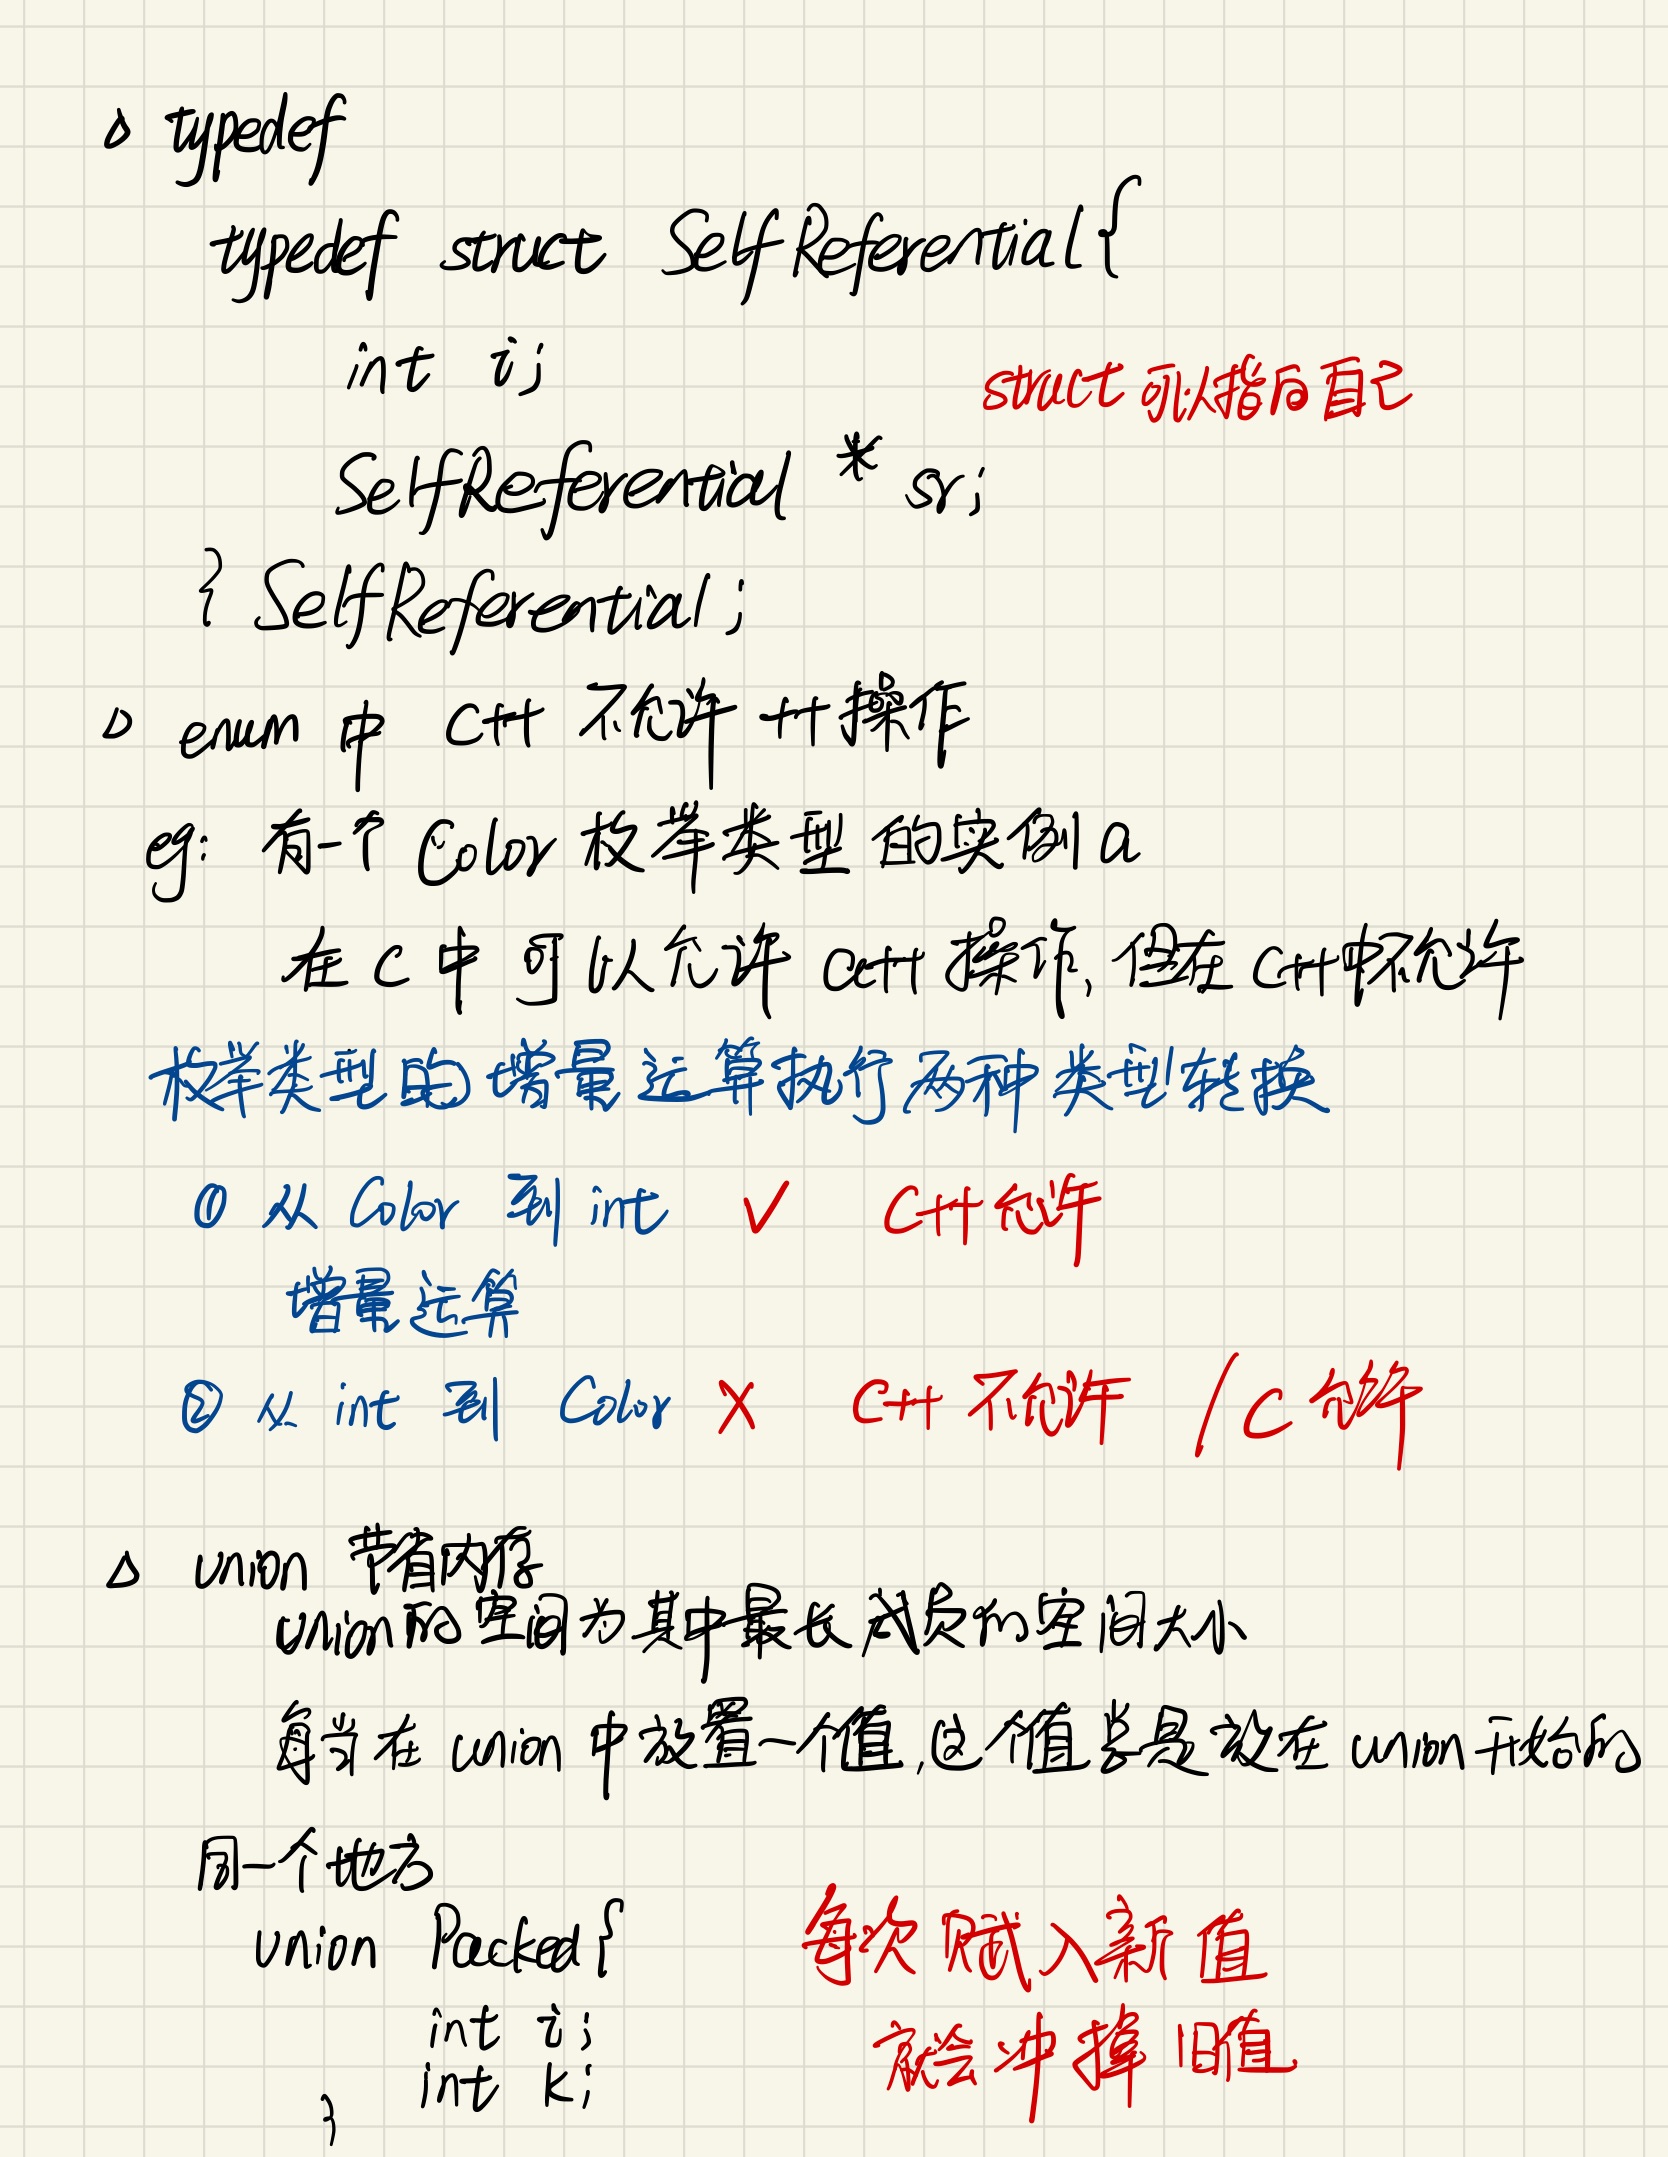 △ typedef
typedef struct SelfReferential{
int i;
struct 可以指向自己
SelfReferential * sr;
} SelfReferential;
△ enum 中 C++ 不允许 ++操作
eg: 有一个 Color 枚举类型的实例 a
在 C 中可以允许 a++ 操作, 但在 C++中不允许
枚举类型的增量运算执行两种类型转换
① 从 Color 到 int ✓ C++允许
增量运算
② 从 int 到 Color X C++ 不允许 / C 允许
△ union 节省内存
union的空间为其中最长成员的空间大小
每当在 union 中放置一个值,这个值总是放在 union 开始的
同一个地方
union Packed{
每次赋入新值
int i;
就会冲掉旧值
int k;
}